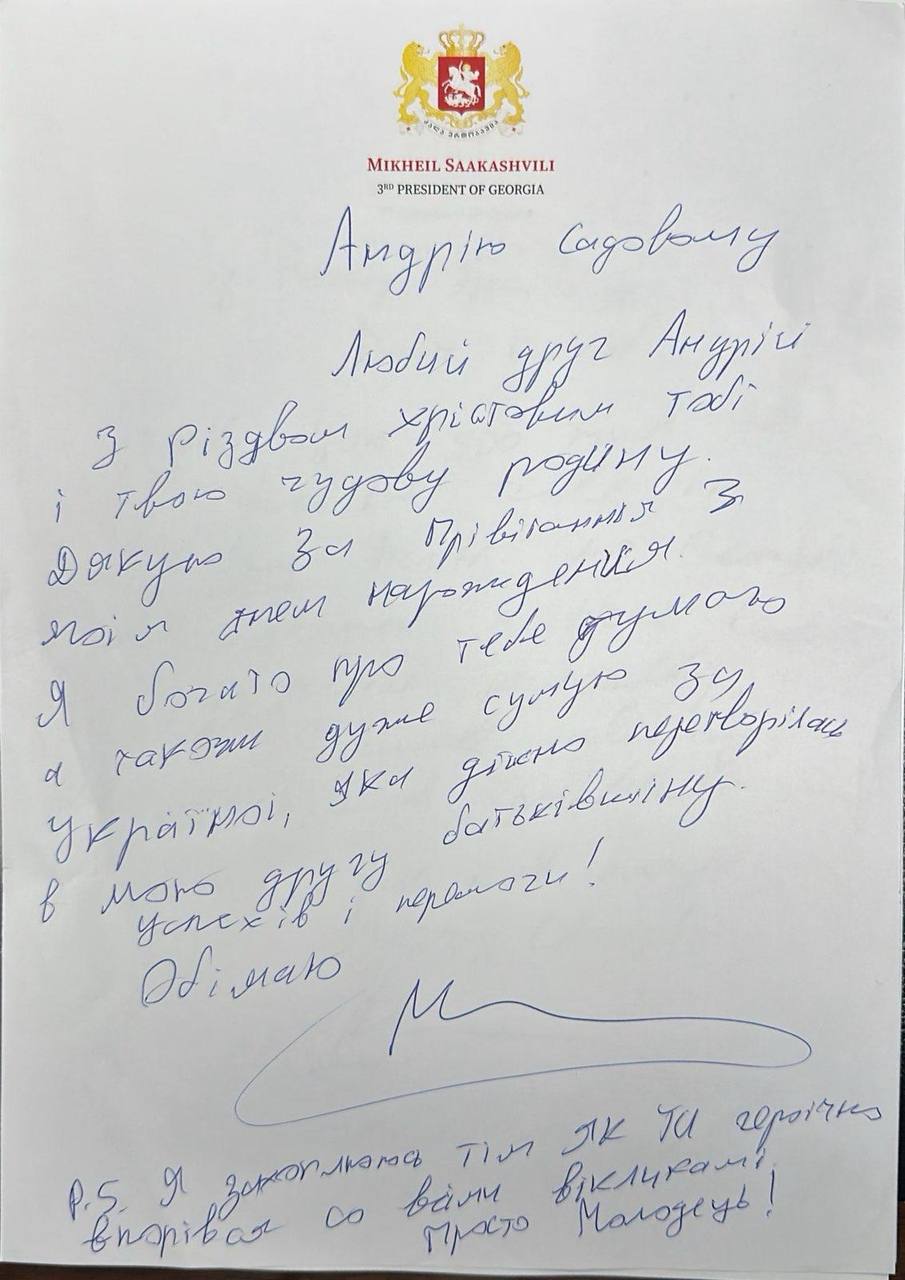 ძალა ერთობაშია
MIKHEIL SAAKASHVILI
3RD PRESIDENT OF GEORGIA
Андрію Садовому
Любий друг Андрій
З різдвом хрістовим тобі
і твою чудову родину.
Дякую за прівітання з
моім днем нарождения.
Я богато про тебе думаю
а також дуже сумую за
Україної, яка дійсно перетворілась
в мою другу батьківщіну.
Успехів і перемоги!
Обімаю
P.S. Я захоплююсь тім як ти героічно
впорівая со всіми вікликамі.
Просто Молодець!